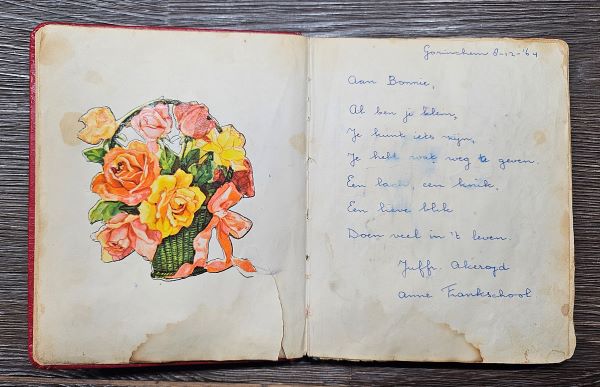 Gorinchem 8-12-'64
Aan Bonnie,
Al ben je klein,
Je kunt iets zijn,
Je hebt wat weg te geven.
Een lach, een knik,
Een lieve blik
Doen veel in 't leven.
Juffr. Akeroyd
Anne Frankschool